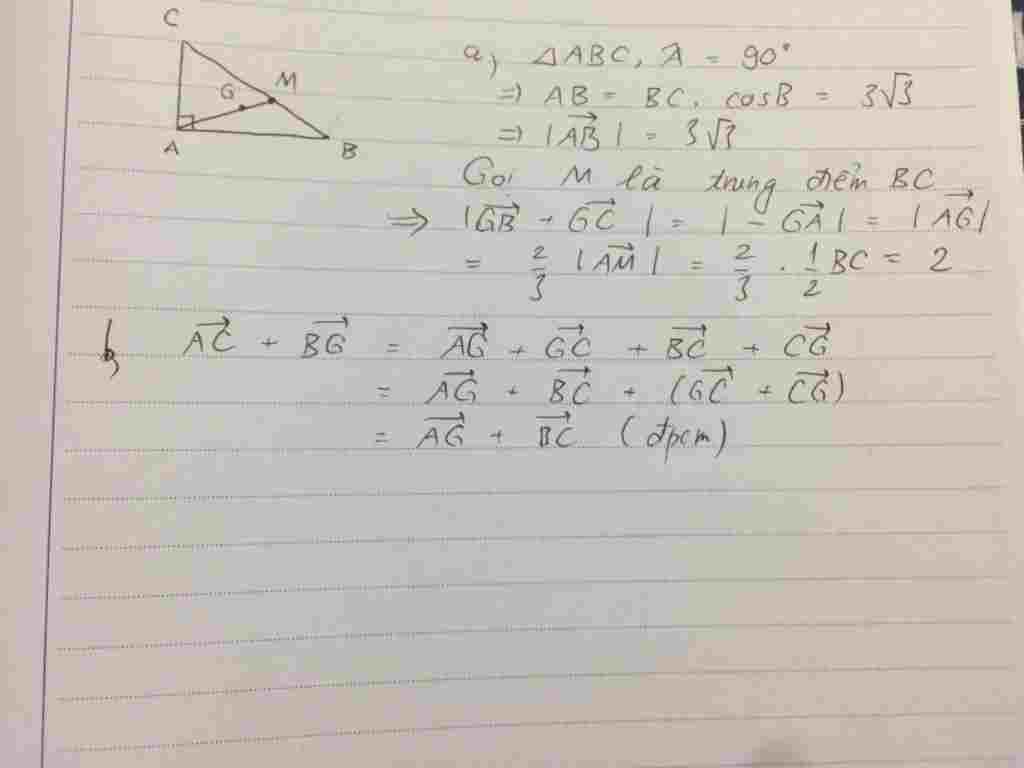 C
G
M
A
B
a, ΔABC, Â = 90°
=> AB = BC. cosB = 3√3
=> |AB→| = 3√3
Gọi M là trung điểm BC
=> |GB→ + GC→| = |-GA→| = |AG→|
= 2/3 |AM→| = 2/3 . 1/2 BC = 2
b, AC→ + BG→ = AG→ + GC→ + BC→ + CG→
= AG→ + BC→ + (GC→ + CG→)
= AG→ + BC→ (đpcm)